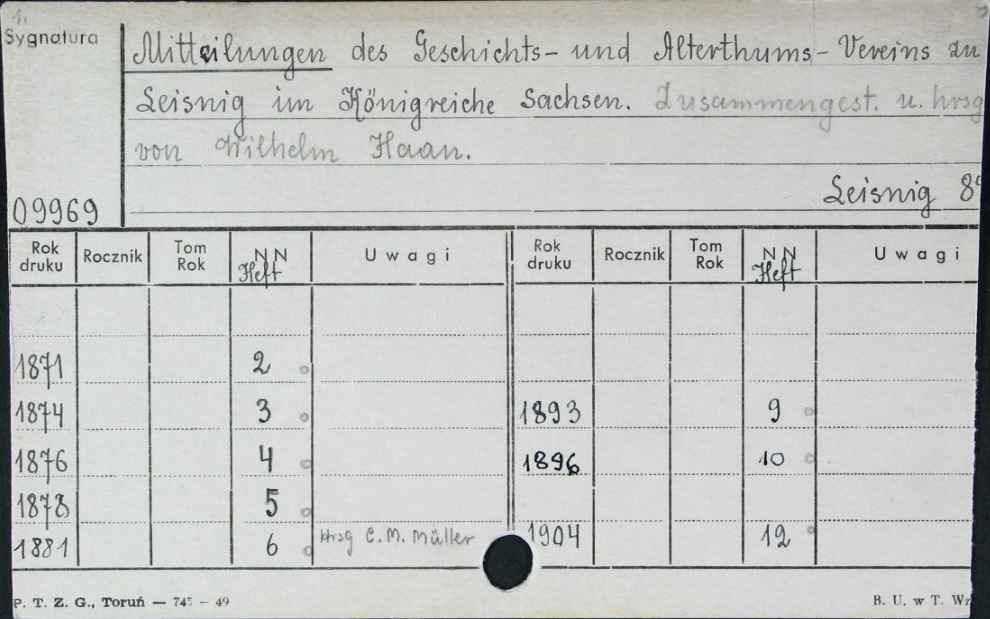 1.
Sygnatura
Mitteilungen des Geschichts- und Alterthums-Vereins zu
Leisnig im Königreiche Sachsen. Zusammengest. u. hrsg
von Wilhelm Haan.
Leisnig 8°
09969
Rok druku Rocznik Tom Rok NN Heft Uwagi Rok druku Rocznik Tom Rok NN Heft Uwagi
1871 2
1874 3 1893 9
1876 4 1896 10
1878 5
1881 6 hrsg C. M. Müller 1904 12
P. T. Z. G., Toruń — 745 - 49 B. U. w T.